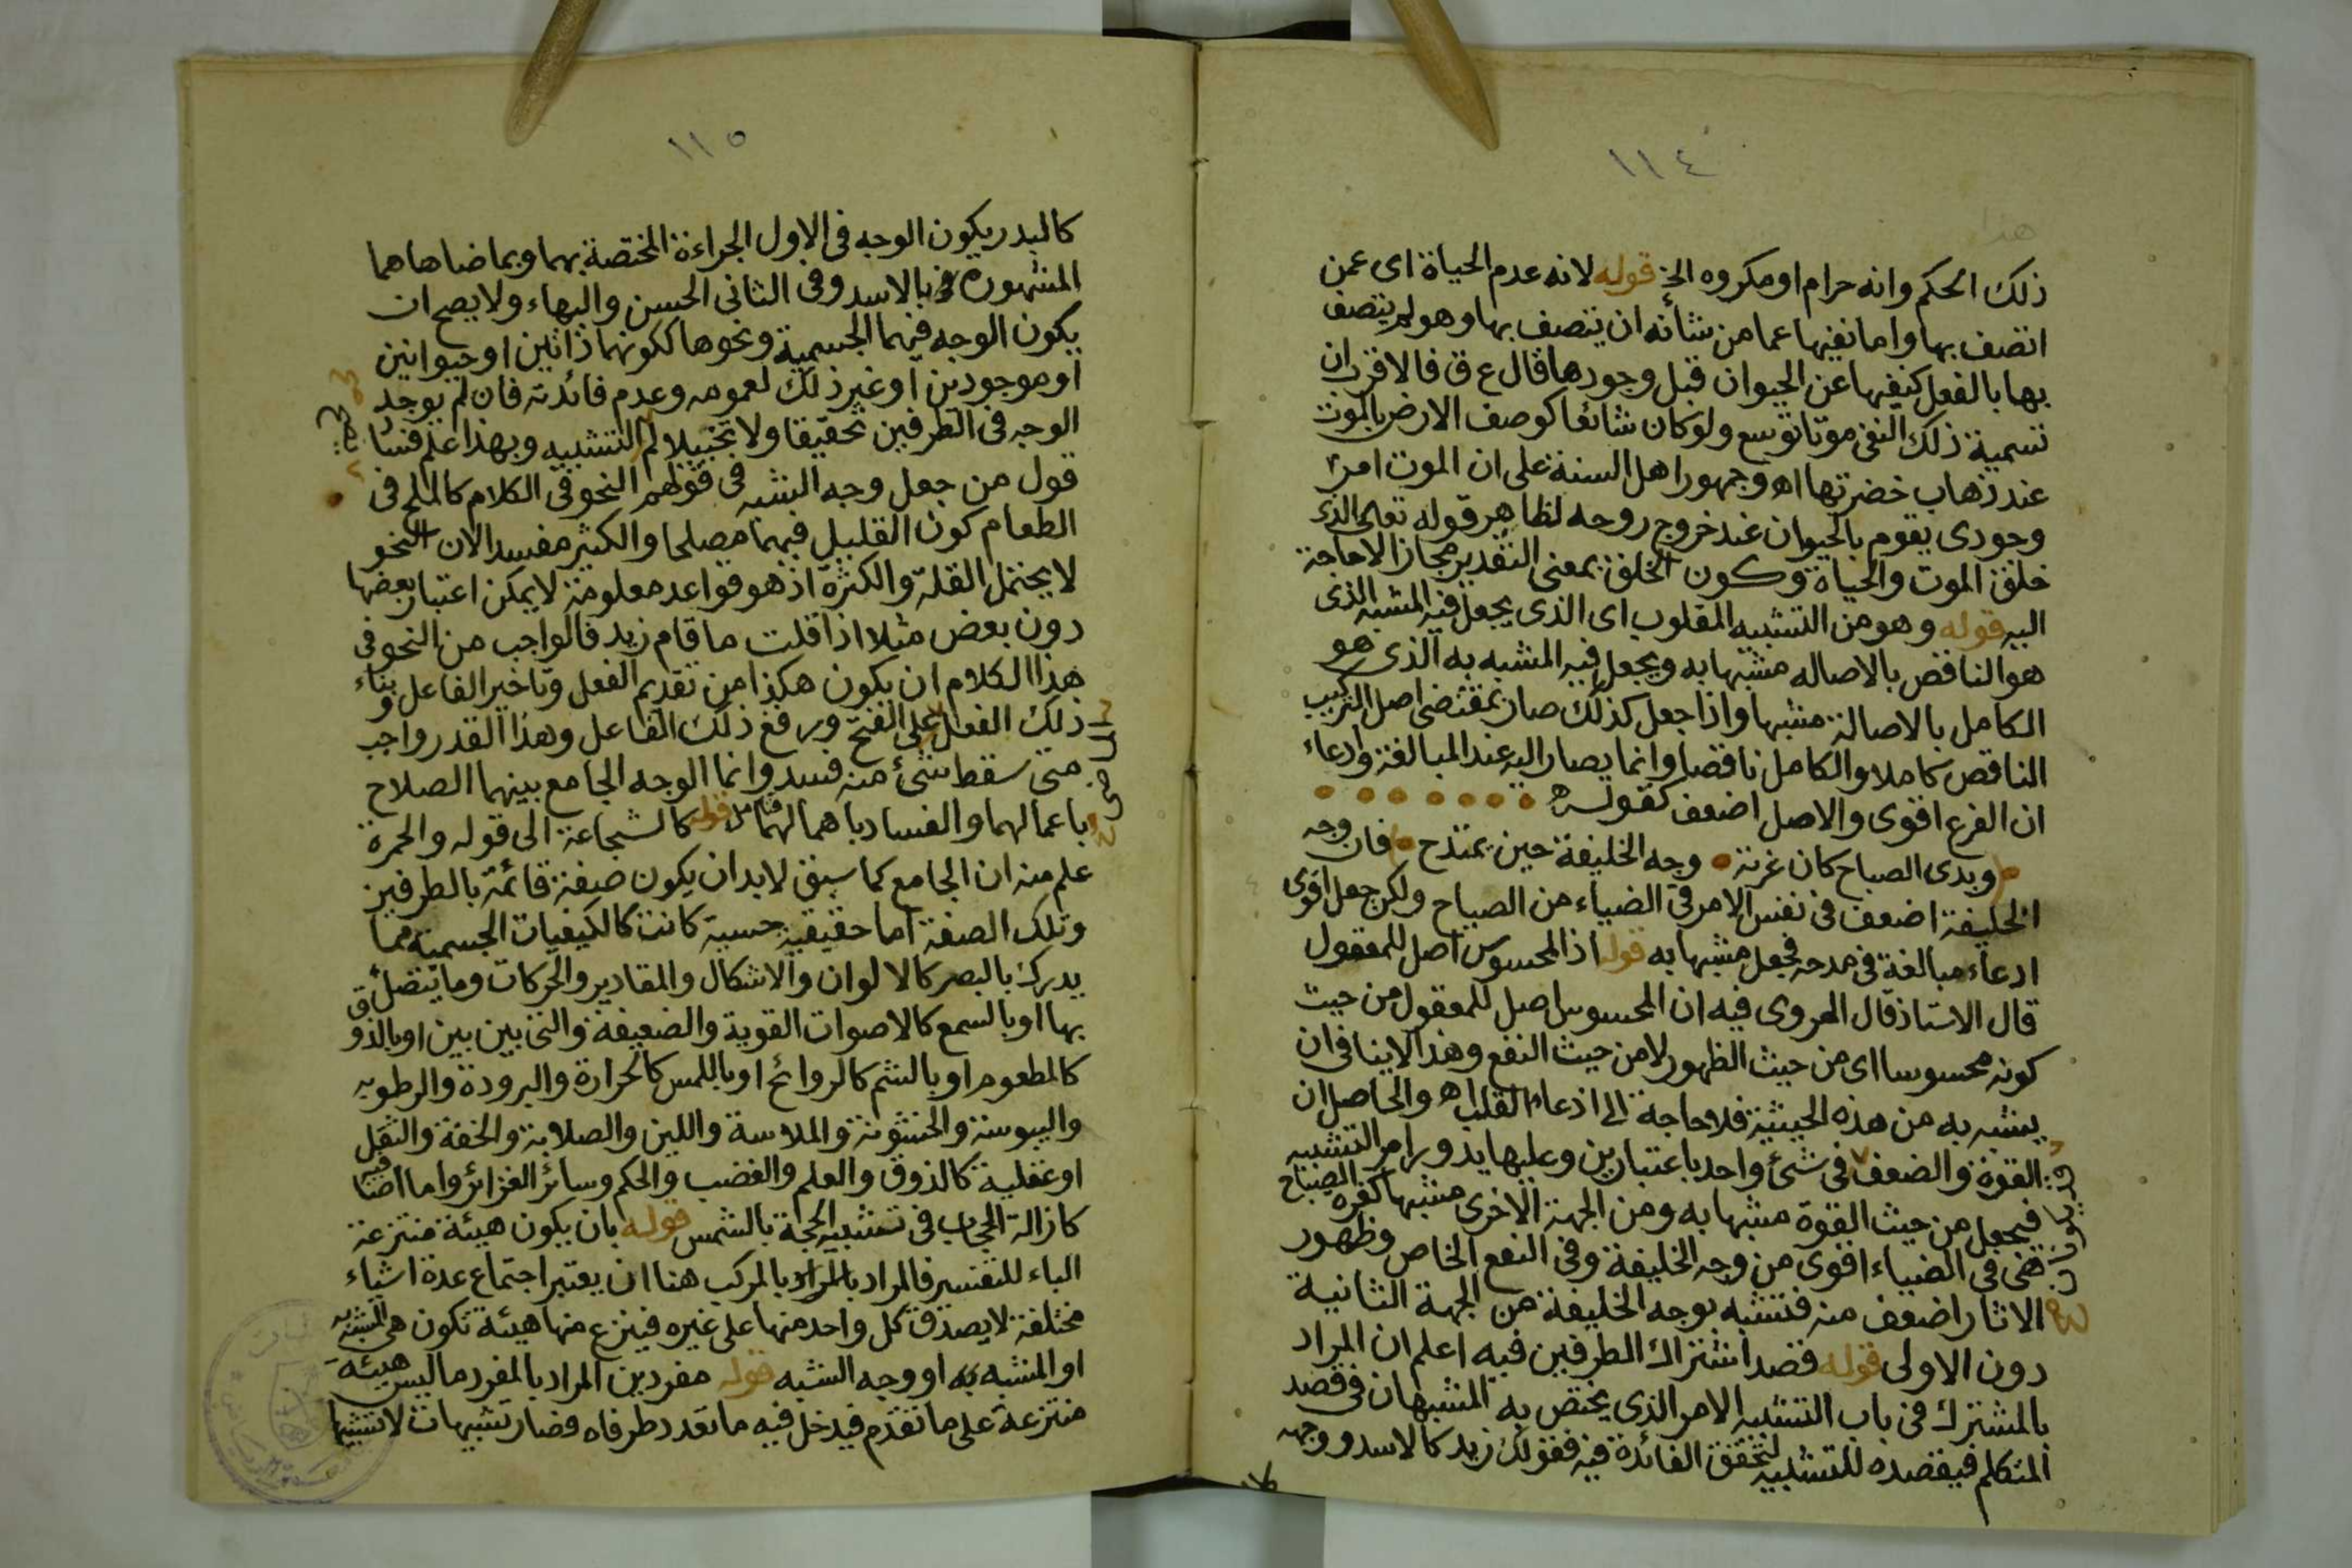 ١١٤
هذا
ذلك الحكم وانه حرام او مكروه الخ قوله لانه عدم الحياة اى عمن
اتصف بها واما نفيها عما من شأنه ان يتصف بها وهو لم يتصف
بها بالفعل كنفيها عن الحيوان قبل وجودها قال ع ق فالاقرب ان
تسمية ذلك النفى موتا توسع ولو كان شائعا كوصف الارض بالموت
عند ذهاب خضرتها اه وجمهور اهل السنة على ان الموت امر
وجودى يقوم بالحيوان عند خروج روحه لظاهر قوله تعالى الذى
خلق الموت والحياة وكون الخلق بمعنى التقدير مجاز الا حاجة
اليه قوله وهو من التشبيه المقلوب اى الذى يجعل فيه المشبه الذى
هو الناقص بالاصاله مشبها به ويجعل فيه المشبه به الذى هو
الكامل بالاصالة مشبها واذا جعل كذلك صار بمقتضى اصل التركيب
الناقص كاملا والكامل ناقصا وانما يصار اليه عند المبالغة وادعاء
ان الفرع اقوى والاصل اضعف كقوله
وبدى الصباح كان غرته وجه الخليفة حين يمتدح فان وجه
الخليفة اضعف فى نفس الامر فى الضياء من الصباح ولكن جعل اقوى
ادعاء مبالغة فى مدحه فجعل مشبها به قوله اذ المحسوس اصل للمعقول
قال الاستاذ قال الهروى فيه ان المحسوس اصل للمعقول من حيث
كونه محسوسا اى من حيث الظهور لا من حيث النفع وهذا لا ينافى ان
يشبه به من هذه الحيثية فلا حاجة الى ادعاء القلب اه والحاصل ان
القوة والضعف فى شئ واحد باعتبارين وعليها يدور امر التشبيه
فيجعل من حيث القوة مشبها به ومن الجهة الاخرى مشبها كغرة الصباح
فهى فى الضياء اقوى من وجه الخليفة وفى النفع الخاص وظهور
الاثار اضعف منه فتشبه بوجه الخليفة من الجهة الثانية
دون الاولى قوله قصد اشتراك الطرفين فيه اعلم ان المراد
بالمشترك فى باب التشبيه الامر الذى يختص به المشبهان فى قصد
المتكلم فيقصده للتشبيه لتحقق الفائدة فيه فقولك زيد كالاسد ووجهه
١١٥
كالبدر يكون الوجه فى الاول الجراءة المختصة بهما وبما ضاهاهما
المشهورة بالاسد وفى الثانى الحسن والبهاء ولا يصح ان
يكون الوجه فيهما الجسمية ونحوها لكونهما ذاتين او حيوانين
او موجودين او غير ذلك لعمومه وعدم فائدته فان لم يوجد
الوجه فى الطرفين تحقيقا ولا تخييلا لم التشبيه وبهذا علم فساد
قول من جعل وجه الشبه فى قولهم النحو فى الكلام كالملح فى
الطعام كون القليل فيهما مصلحا والكثير مفسدا لان النحو
لا يحتمل القلة والكثرة اذ هو قواعد معلومة لا يمكن اعتبار بعضها
دون بعض مثلا اذا قلت ما قام زيد فالواجب من النحو فى
هذا الكلام ان يكون هكذا من تقديم الفعل وتاخير الفاعل وبناء
ذلك الفعل على الفتح ورفع ذلك الفاعل وهذا القدر واجب
متى سقط شئ منه فسد وانما الوجه الجامع بينهما الصلاح
باعمالهما والفساد باهمالهما قوله كالشجاعة الى قوله والحمرة
علم منه ان الجامع كما سبق لابد ان يكون صفة قائمة بالطرفين
وتلك الصفة اما حقيقية حسية كانت كالكيفيات الجسمية مما
يدرك بالبصر كالالوان والاشكال والمقادير والحركات وما يتصل
بها او بالسمع كالاصوات القوية والضعيفة والتى بين بين او بالذوق
كالمطعوم او بالشم كالروائح او باللمس كالحرارة والبرودة والرطوبه
واليبوسة والخشونة والملاسة واللين والصلابة والخفة والثقل
او عقلية كالذوق والعلم والغضب والحكم وسائر الغرائز واما اضافيه
كازالة الحجاب فى تشبيه الحجة بالشمس قوله بان يكون هيئة منتزعة
الباء للتفسير فالمراد بالمركب هنا ان يعتبر اجتماع عدة اشياء
مختلفة لا يصدق كل واحد منها على غيره فينزع منها هيئة تكون هى المشبه
او المشبه به او وجه الشبه قوله مفردين المراد بالمفرد ما ليس هيئة
منتزعة على ما تقدم فيدخل فيه ما تعدد طرفاه فصار تشبيهات لا تشبيها